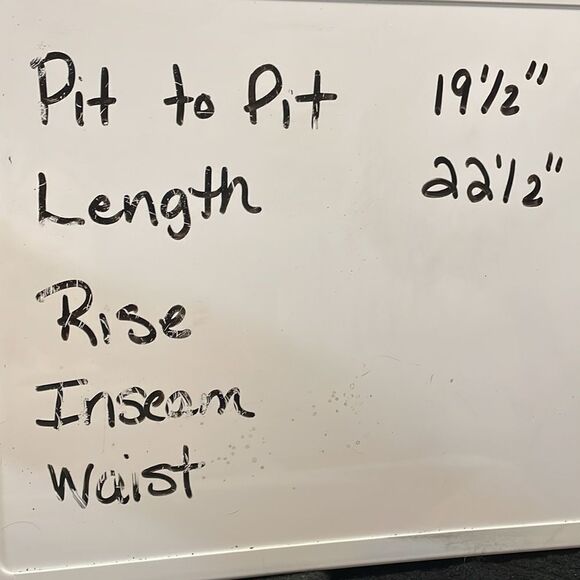 Pit to Pit 19 1/2"
Length 22 1/2"
Rise
Inseam
Waist